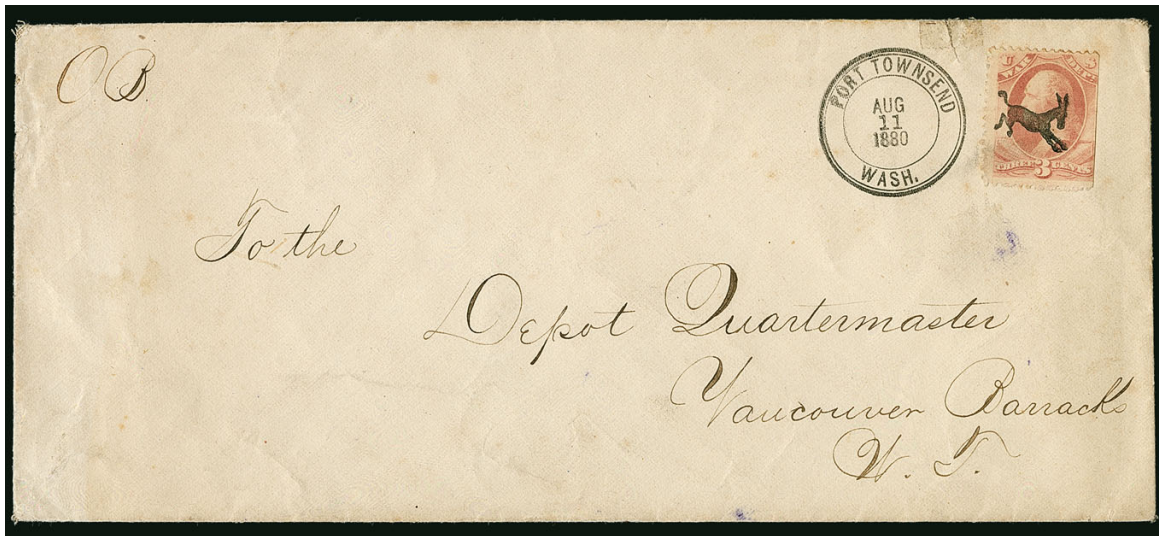 O B.
PORT TOWNSEND
AUG
11
1880
WASH.
U S
WAR DEPT.
THREE 3 CENTS
To the
Depot Quartermaster
Vancouver Barracks
W. T.